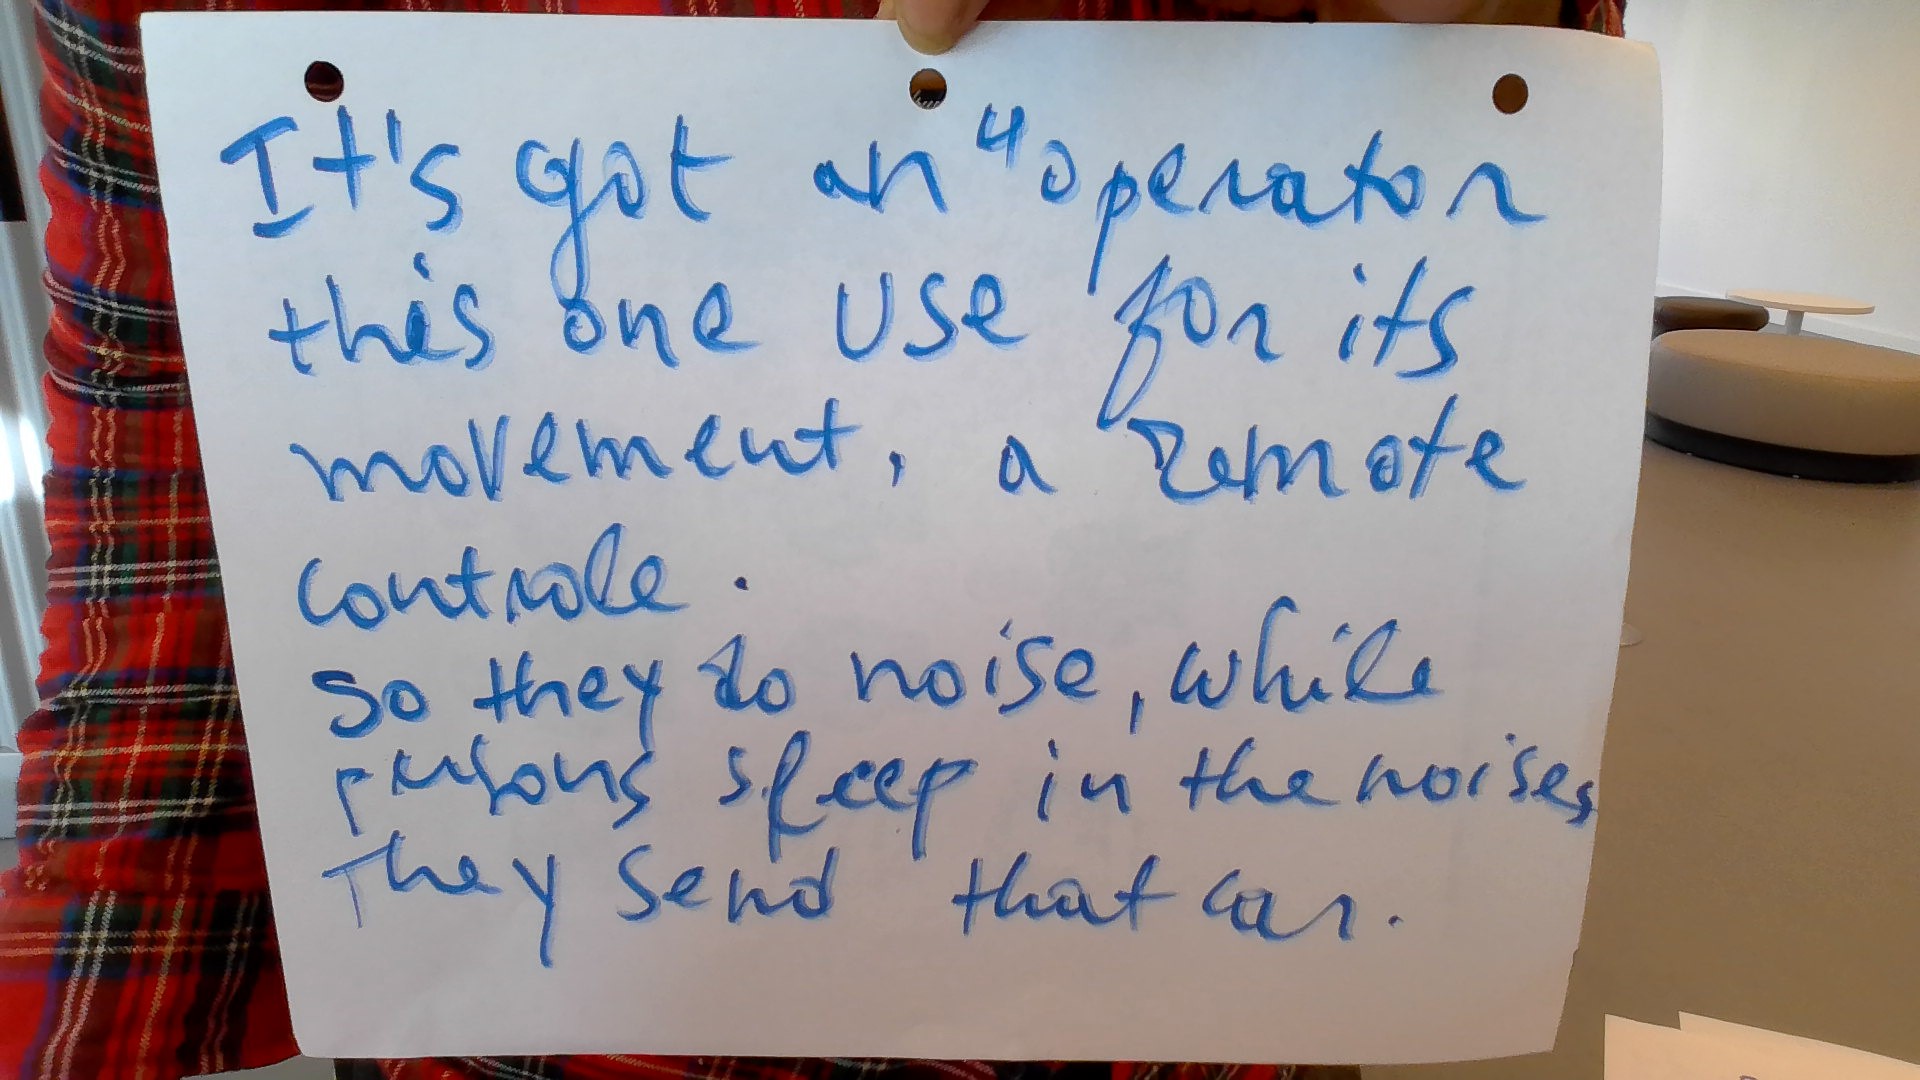 It's got an "operator
this one use for its
movement, a remote
controle.
so they do noise, while
persons sleep in the noises
They send that car.